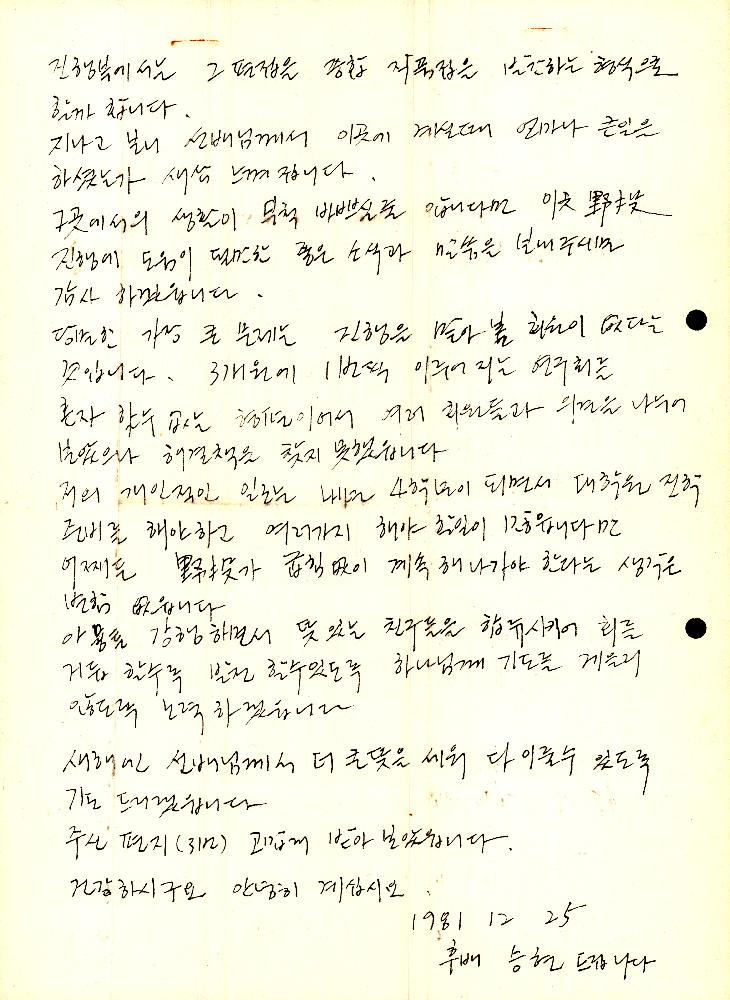 진행부에서는 그 편집을 종합 작품집을 발간하는 형식으로
할까 합니다.
지나고 보니 선배님께서 이곳에 계실때 얼마나 큰일을
하셨는가 새삼 느껴집니다.
그곳에서의 생활이 무척 바쁘실줄 압니다만 이곳 野火
진행에 도움이 될만한 좋은 소식과 말씀을 보내주시면
감사 하겠읍니다.
당면한 가장 큰 문제는 진행을 맡아 볼 회원이 없다는
것입니다. 3개월에 1번씩 이루어지는 연구회를
혼자 할수 없는 형편이어서 여러 회원들과 의견을 나누어
보았으나 해결책을 찾지 못했읍니다
저의 개인적인 일로는 내년 4학년이 되면서 대학원 진학
준비를 해야하고 여러가지 해야 할일이 많읍니다만
어쨌든 가 끊힘없이 계속해 나가야 한다는 생각은
변함 없읍니다
강행하면서 뜻있는 친구들을 합류시키어 회를
거듭 할수록 발전 할수있도록 하나님께 기도를 게을리
않도록 노력하겠읍니다
새해엔 선배님께서 더 큰뜻을 세워 다 이룰수 있도록
기도 드리겠읍니다
주신 편지(3매) 고맙게 받아 보았읍니다.
건강하시구요 안녕히 계십시오.
1981 12 25
후배 승현 드립니다